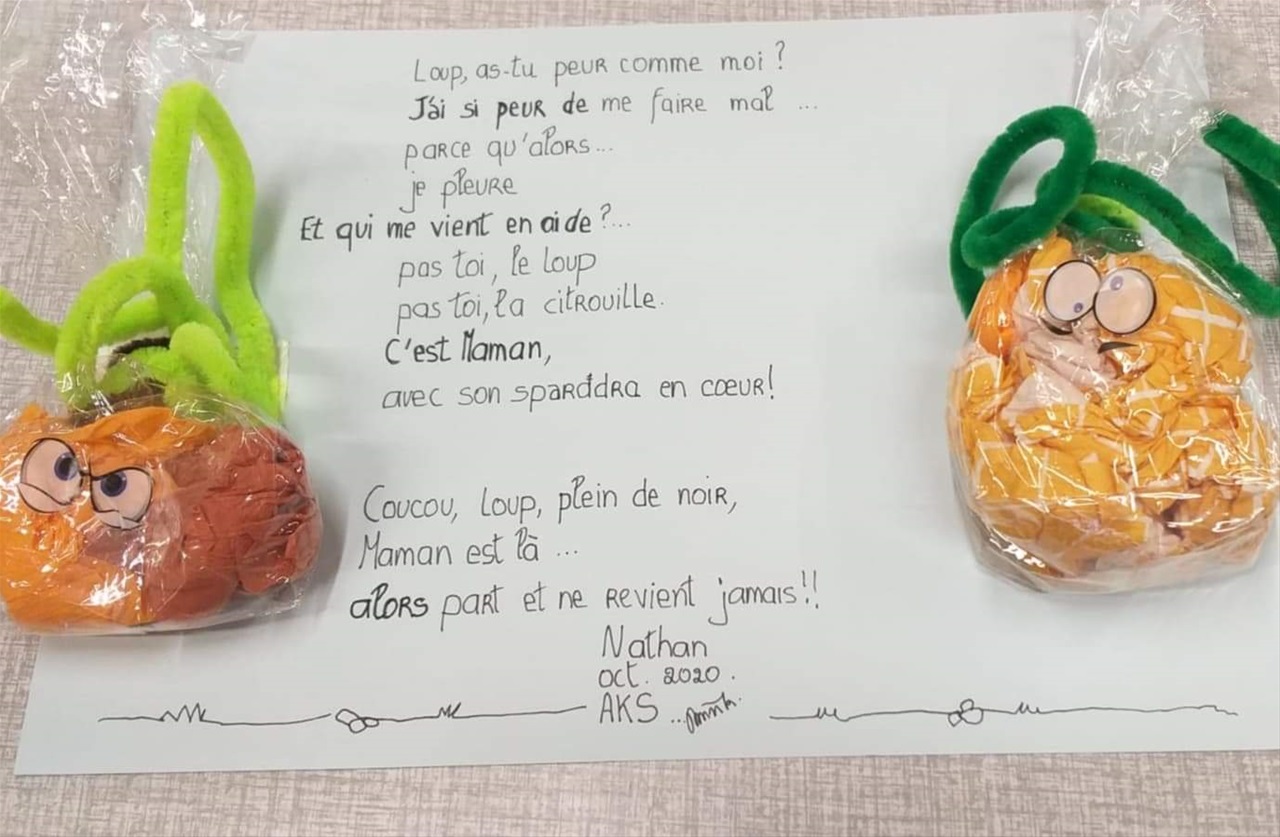 Loup, as-tu peur comme moi ?
J'ai si peur de me faire mal ...
parce qu'alors...
je pleure
Et qui me vient en aide ?...
pas toi, le loup
pas toi, la citrouille.
C'est Maman,
avec son sparadra en cœur !
Coucou, loup, plein de noir,
Maman est là ...
alors part et ne revient jamais !!
Nathan
oct. 2020.
AKS ...